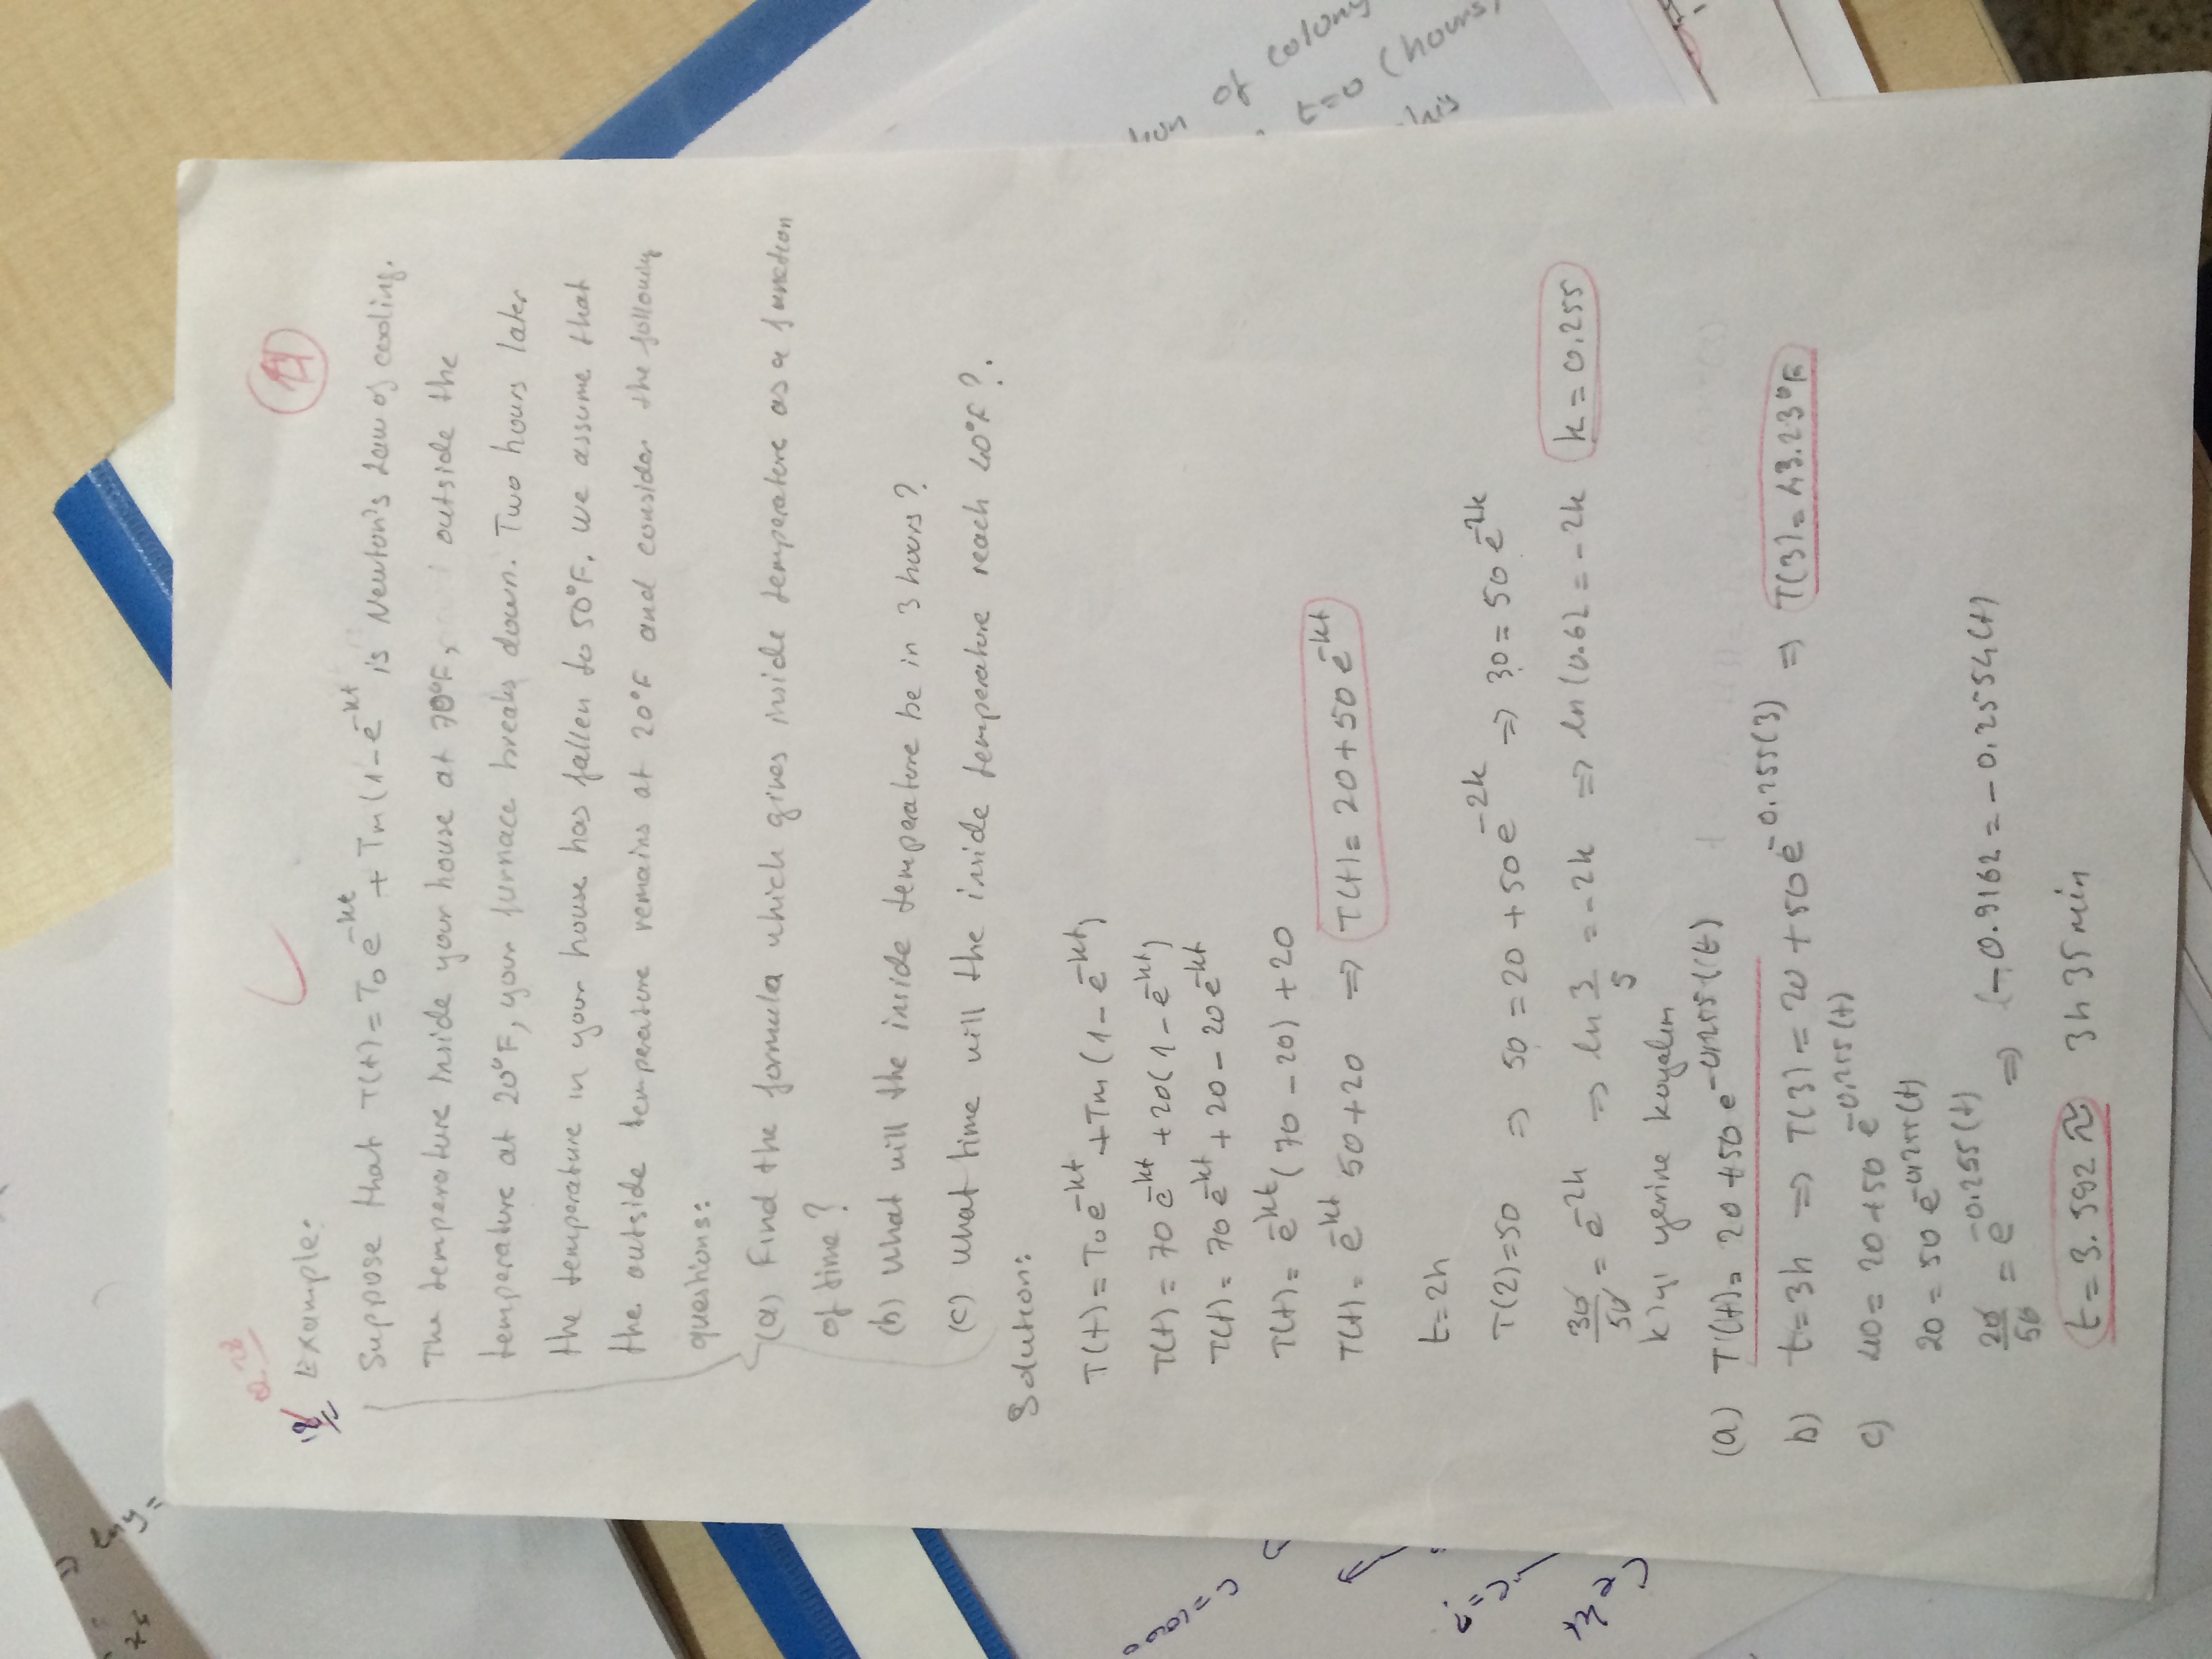 14
Example:
Suppose that T(t) = T₀ e^-kt + Tm (1 - e^-kt) is Newton's Law of cooling.
The temperature inside your house at 70°F, outside the
temperature at 20°F, your furnace breaks down. Two hours later
the temperature in your house has fallen to 50°F. We assume that
the outside temperature remains at 20°F and consider the following
questions:
(a) Find the formula which gives inside temperature as a function
of time?
(b) what will the inside temperature be in 3 hours?
(c) what time will the inside temperature reach 40°F?
Solution:
T(t) = T₀ e^-kt + Tm (1 - e^-kt)
T(t) = 70 e^-kt + 20 (1 - e^-kt)
T(t) = 70 e^-kt + 20 - 20 e^-kt
T(t) = e^-kt (70 - 20) + 20
T(t) = e^-kt 50 + 20 ⇒ T(t) = 20 + 50 e^-kt
t = 2h
T(2) = 50 ⇒ 50 = 20 + 50 e^-2k ⇒ 30 = 50 e^-2k
30/50 = e^-2k ⇒ ln 3/5 = -2k ⇒ ln (0.6) = -2k k = 0,255
k'yı yerine koyalım
(a) T(t) = 20 + 50 e^-0,255(t)
b) t = 3h ⇒ T(3) = 20 + 50 e^-0,255(3) ⇒ T(3) = 43.23°F
c) 40 = 20 + 50 e^-0,255(t)
20 = 50 e^-0,255(t)
20/50 = e^-0,255(t) ⇒ -0.9162 = -0,2554(t)
t = 3.592 ≈ 3h 35min
colony
of
t=0 (hours)
lny =
c = 1000